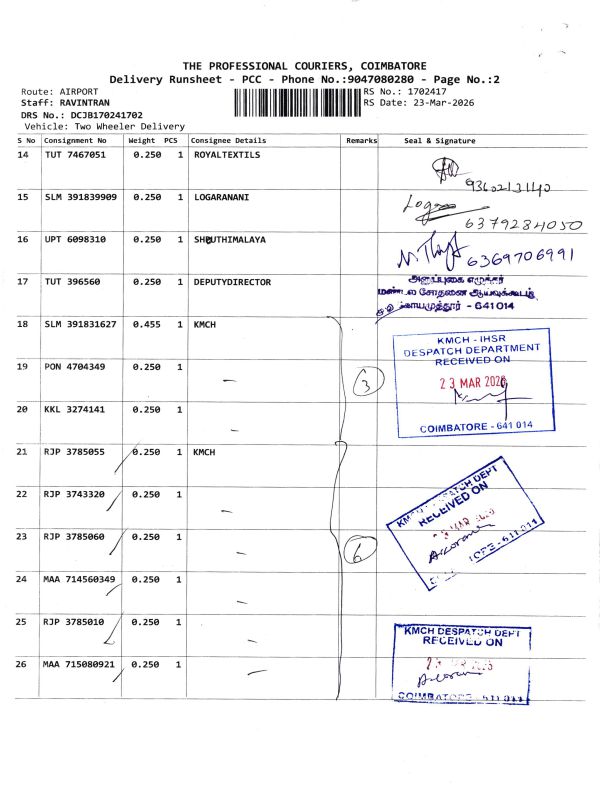 THE PROFESSIONAL COURIERS, COIMBATORE
Delivery Runsheet - PCC - Phone No.:9047080280 - Page No.:2
Route: AIRPORT
Staff: RAVINTRAN
DRS No.: DCJB170241702
Vehicle: Two Wheeler Delivery
RS No.: 1702417
RS Date: 23-Mar-2026
S No Consignment No Weight PCS Consignee Details Remarks Seal & Signature
14 TUT 7467051 0.250 1 ROYALTEXTILS
9360213140
15 SLM 391839909 0.250 1 LOGARANANI
Loga
6379284050
16 UPT 6098310 0.250 1 SHRUTHIMALAYA
6369706991
17 TUT 396560 0.250 1 DEPUTYDIRECTOR
அனுப்புகை எழுத்தர்
மண்டல சோதனை ஆய்வுக்கூடம்
கோயமுத்தூர் - 641014
18 SLM 391831627 0.455 1 KMCH
19 PON 4704349 0.250 1 -
20 KKL 3274141 0.250 1 -
3
KMCH - IHSR
DESPATCH DEPARTMENT
RECEIVED ON
23 MAR 2026
COIMBATORE - 641 014
21 RJP 3785055 0.250 1 KMCH
22 RJP 3743320 0.250 1 -
23 RJP 3785060 0.250 1 -
24 MAA 714560349 0.250 1 -
25 RJP 3785010 0.250 1 -
26 MAA 715080921 0.250 1 -
6
KMCH DESPATCH DEPT
RECEIVED ON
MAR
KMCH DESPATCH DEPT
RECEIVED ON
23
COIMBATORE